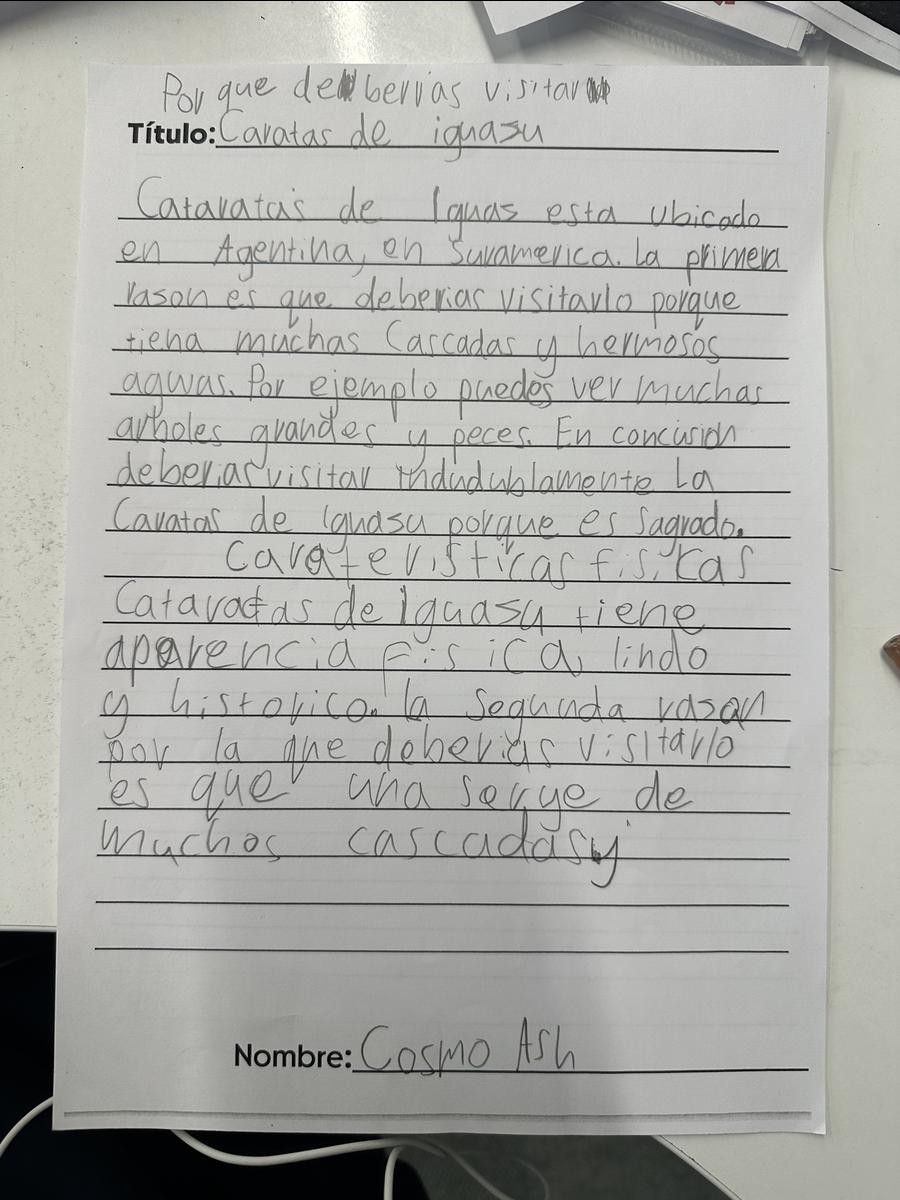 Por que deberias visitar
Título: Caratas de iguasu
Cataratas de Iguas esta ubicado
en Agentina, en Suramerica. la primera
rason es que deberias visitarlo porque
tiena muchas Cascadas y hermosos
aguas. Por ejemplo puedes ver muchas
arboles grandes y peces. En concusion
deberias visitar indudublamente La
Caratas de Iguasu porque es sagrado.
Carateristicas fisicas
Cataratas de Iguasu tiene
aparencia Fisica, lindo
y historico. la Segunda rason
por la que deberias visitarlo
es que una serye de
muchos cascadas y
Nombre: Cosmo Ash